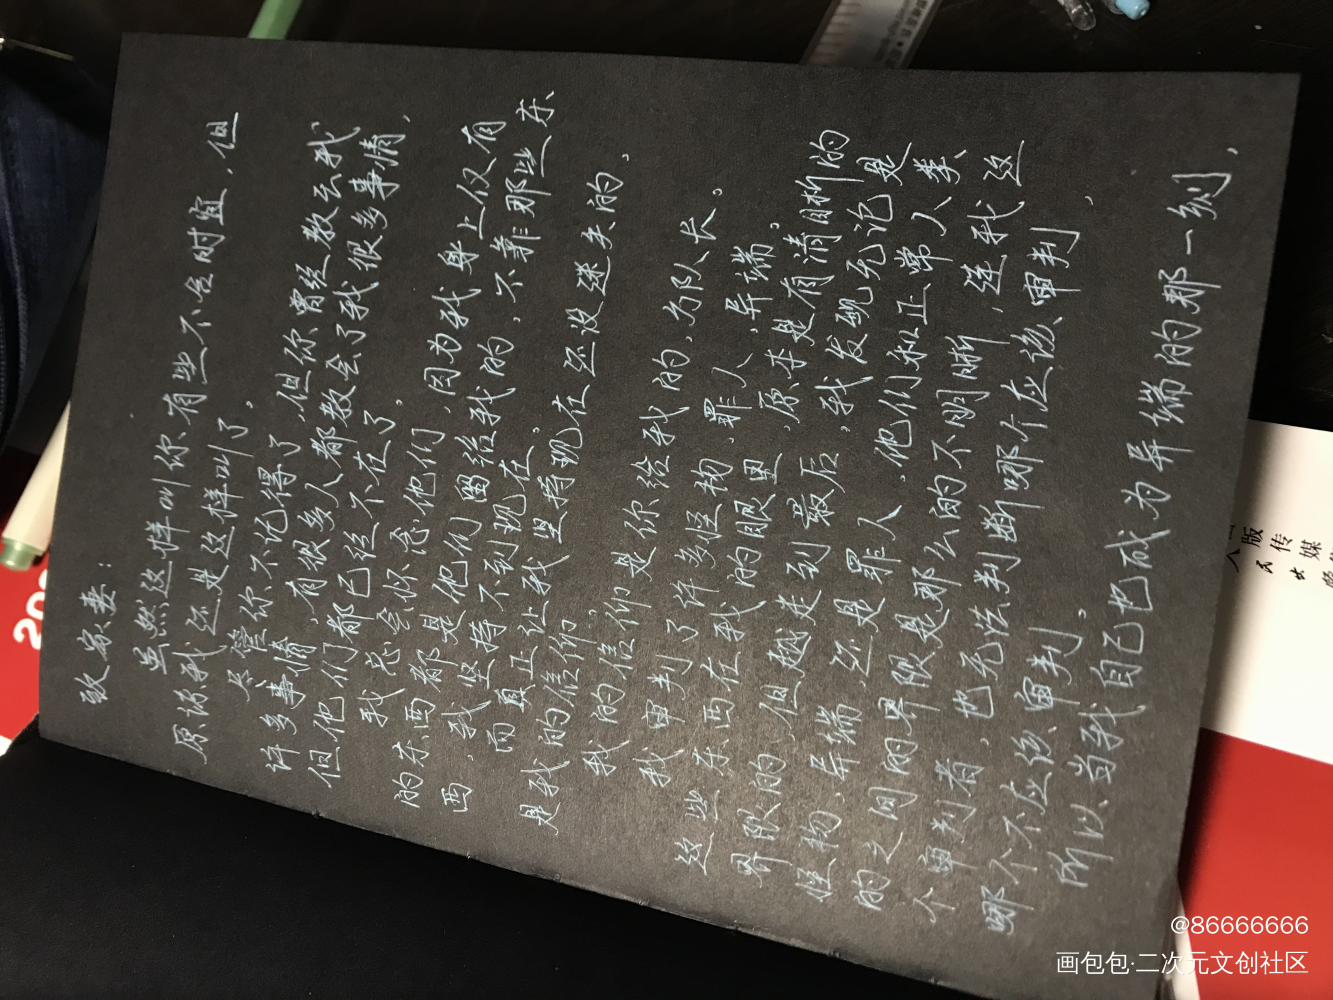 致宾妻:
虽然这样叫你有些不合时宜,但
原谅我还是这样叫了。
尽管你不记得了,但你曾经教会我
许多事情,有很多人都教会了我很多事情,
但他们都已经不在了。
我总会怀念他们,因为我身上仅有
的东西都是他们留给我的,不靠那些东
西,我坚持不到现在。
而真正让我坚持现在还没迷失的,
是我的信仰。
我的信仰是你给我的,为队长。
我审判了许多怪物,罪人,异端。
这些东西在我的眼里,原本是有清晰的
界限的,但越走到最后,我发现无论是
怪物、异端还是罪人,他们和正常人类
的之间的界限是那么的不明晰,连我这
个审判者,也无法判断哪个应该审判
哪个不应该审判。
所以当我自己也成为异端的那一刻,
20
人
版
民传
媒
@86666666
画包包·二次元文创社区